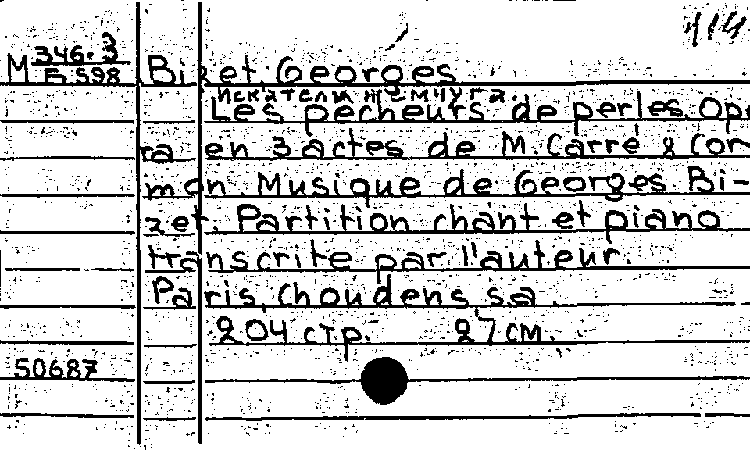 414
M 346-3 Bizet. Georges
Б 598
Искатели жемчуга.
Les pecheurs de perles Opé
ra en 3 actes de M. Carré & Cor
mon. Musique de Georges Bi-
zet. Partition chant et piano
transcrite par l'auteur.
Paris, Choudens, s.a.
204 стр. 27 см.
50687